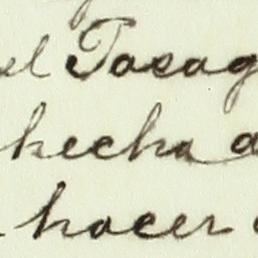 el Pasag
hecha a
hacer